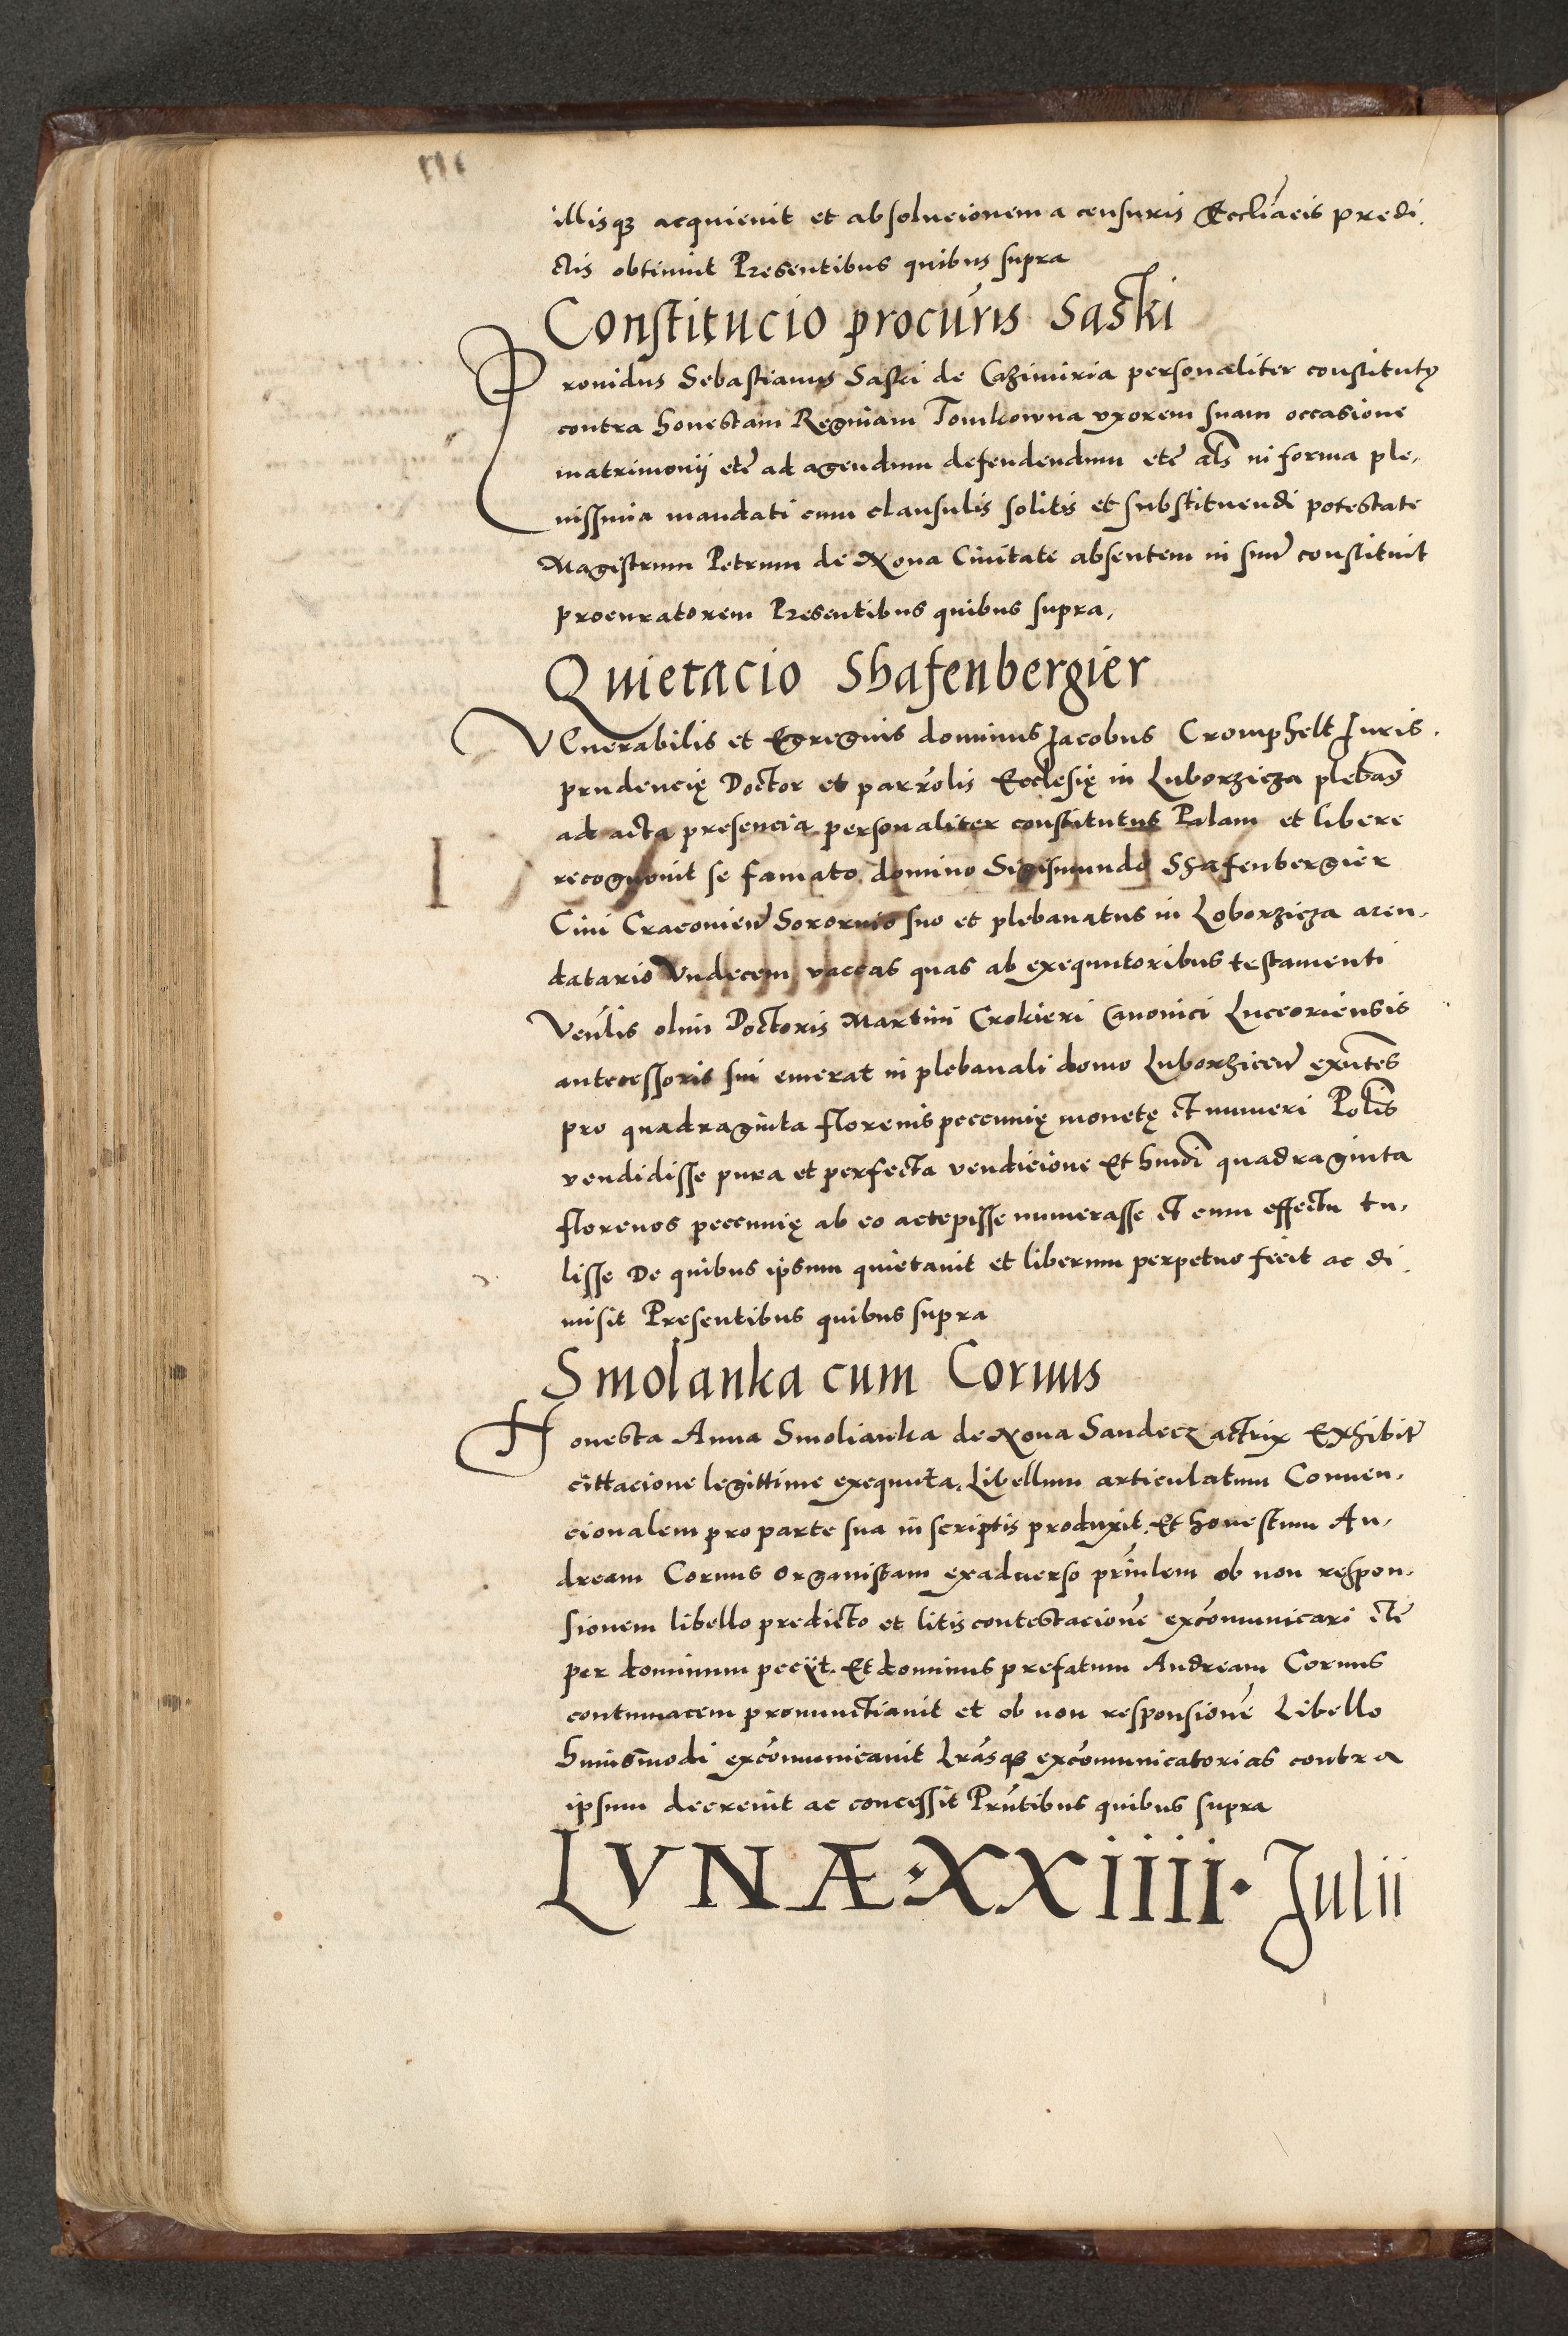 illisq3 acquieuit et absolucionem a censuris Eccliacis predi
ctis obtinuit Presentibus quibus supra
Constitucio procuris Saski
Prouidus Sebastianus Saski de Cazimiria personaliter constitutꝰ
contra honestam Reginam Tomkowna vxorem suam occasione
matrimonij etc ad agendum defendendum etc als in forma ple,
nissima mandati cum clausulis solitis et substituendi potestate
Magistrum Petrum de Noua Ciuitate absentem in suum constituit
procuratorem Presentibus quibus supra,
Quietacio Shafenbergier
VEnerabilis et Egregius dominus Jacobus Cromphelt Juris.
prudencię Doctor et parrolis Ecclesię in Luborzicza plebas
ad acta presencia personaliter constitutus Palam et libere
recognouit se famato domino Sigismundo Shafenbergier
Ciui Cracouien Sororio suo et plebanatus in Loborzicza aren,
datario Vndecem vaccas quas ab exequutoribus testamenti
Venlis olim Doctoris Martini Crokieri Canonici Luceoriensis
antecessoris sui emerat in plebanali domo Luborzicen exntes
pro quadraginta florenis pecunnię monetę et numeri Polis
vendidisse pura et perfecta vendicione Et hmoi quadraginta
florenos pecunnię ab eo accepisse numerasse et cum effectu tu,
lisse De quibus ipsum quietauit et liberum perpetuo fecit ac di
misit Presentibus quibus supra
Smolanka cum Cornus
Honesta Anna Smolianka de Noua Sandecz actrix Exhibit
cittacione legittime exequuta, Libellum articulatum Conuen,
cionalem pro parte sua in scriptis produxit. Et honestum An,
dream Cornus Organistam exaduerso prinlem ob non respon,
sionem libello predicto et litis contestacione excomunicari etc
per dominum peciit. Et dominus prefatum Andream Cornus
contumacem pronunctiauit et ob non responsione Libello
huiusmodi excomunicauit Lrasq3 excomunicatorias contra
ipsum decreuit ac concessit Prntibus quibus supra
LVNÆ·XXIIII· Julii